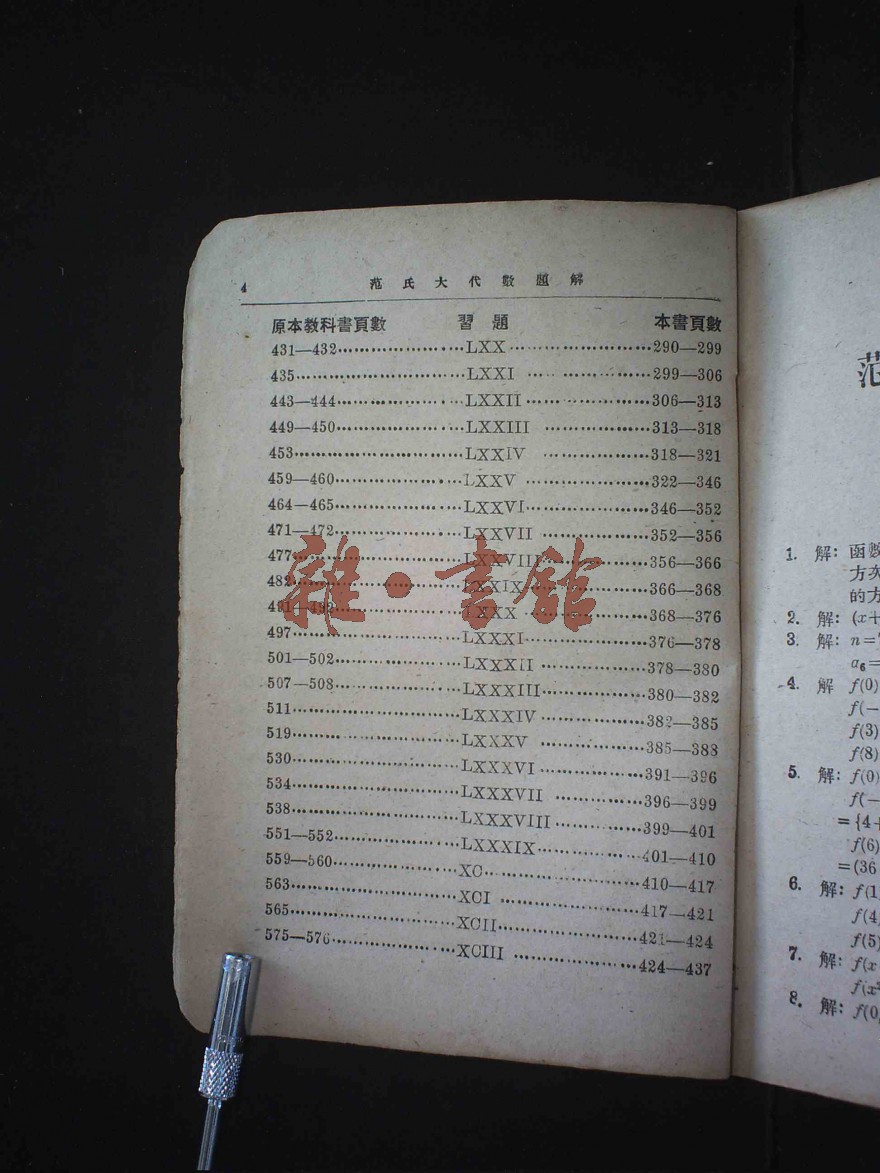 4 范氏大代數題解
原本教科書頁數 習題 本書頁數
431—432 LXX 290—299
435 LXXI 299—306
443—444 LXXII 306—313
449—450 LXXIII 313—318
453 LXXIV 318—321
459—460 LXXV 322—346
464—465 LXXVI 346—352
471—472 LXXVII 352—356
477 LXXVIII 356—366
482 LXXIX 366—368
491—492 LXXX 368—376
497 LXXXI 376—378
501—502 LXXXII 378—380
507—508 LXXXIII 380—382
511 LXXXIV 382—385
519 LXXXV 385—388
530 LXXXVI 391—396
534 LXXXVII 396—399
538 LXXXVIII 399—401
551—552 LXXXIX 401—410
559—560 XC 410—417
563 XCI 417—421
565 XCII 421—424
575—576 XCIII 424—437
雜·書館
范
1. 解: 函數
方次
的方
2. 解: (x+
3. 解: n=
a₆=
4. 解 f(0)
f(—
f(3)
f(8)
5. 解: f(0)
f(—
={4+
f(6)
=(36
6. 解: f(1)
f(4
f(5)
7. 解: f(x
f(x²
8. 解: f(0